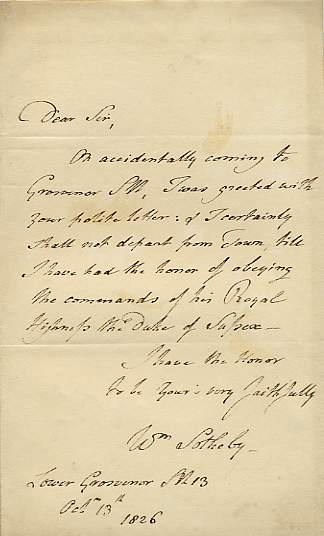 Dear Sir,
On accidentally coming to
Grosvenor Stt, I was greeted with
your polite letter: & I certainly
shall not depart from Town, till
I have had the honor of obeying
the commands of his Royal
Highness the Duke of Sussex—
I have the Honor
to be Your's very faithfully
Wm Sotheby—
Lower Grosvenor Stt 13
Octr 13th
1826